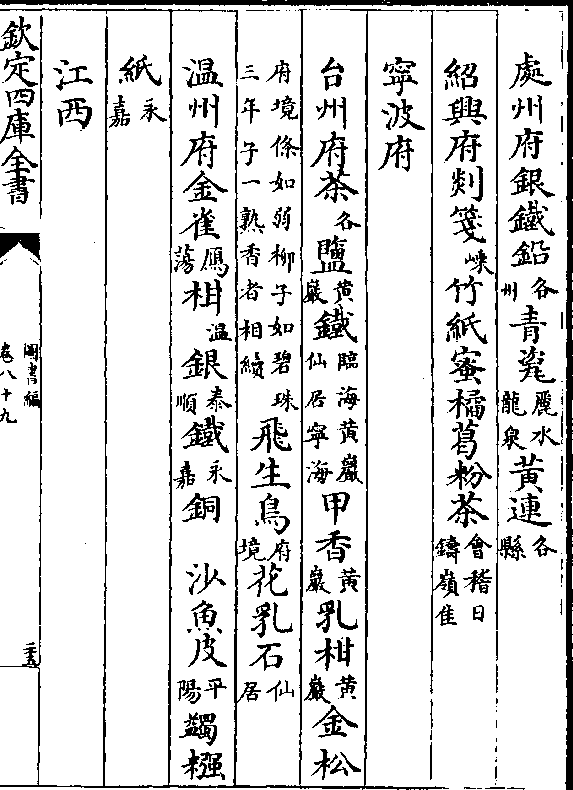 處州府銀鐵鉛各州青瓷麗水龍泉黃連各縣
紹興府剡箋嵊竹紙蜜橘葛粉茶會稽日鑄嶺佳
寧波府
台州府茶各鹽黃巖鐵臨海黃巖仙居寧海甲香黃巖乳柑黃巖金松
府境條如弱柳子如碧珠三年子一熟香者相續飛生鳥府境花乳石仙居
温州府金雀鴈蕩柑温銀泰順鐵永嘉銅 沙魚皮平陽蠲糨
紙永嘉
江西
欽定四庫全書
圖書編
卷八十九
二十五